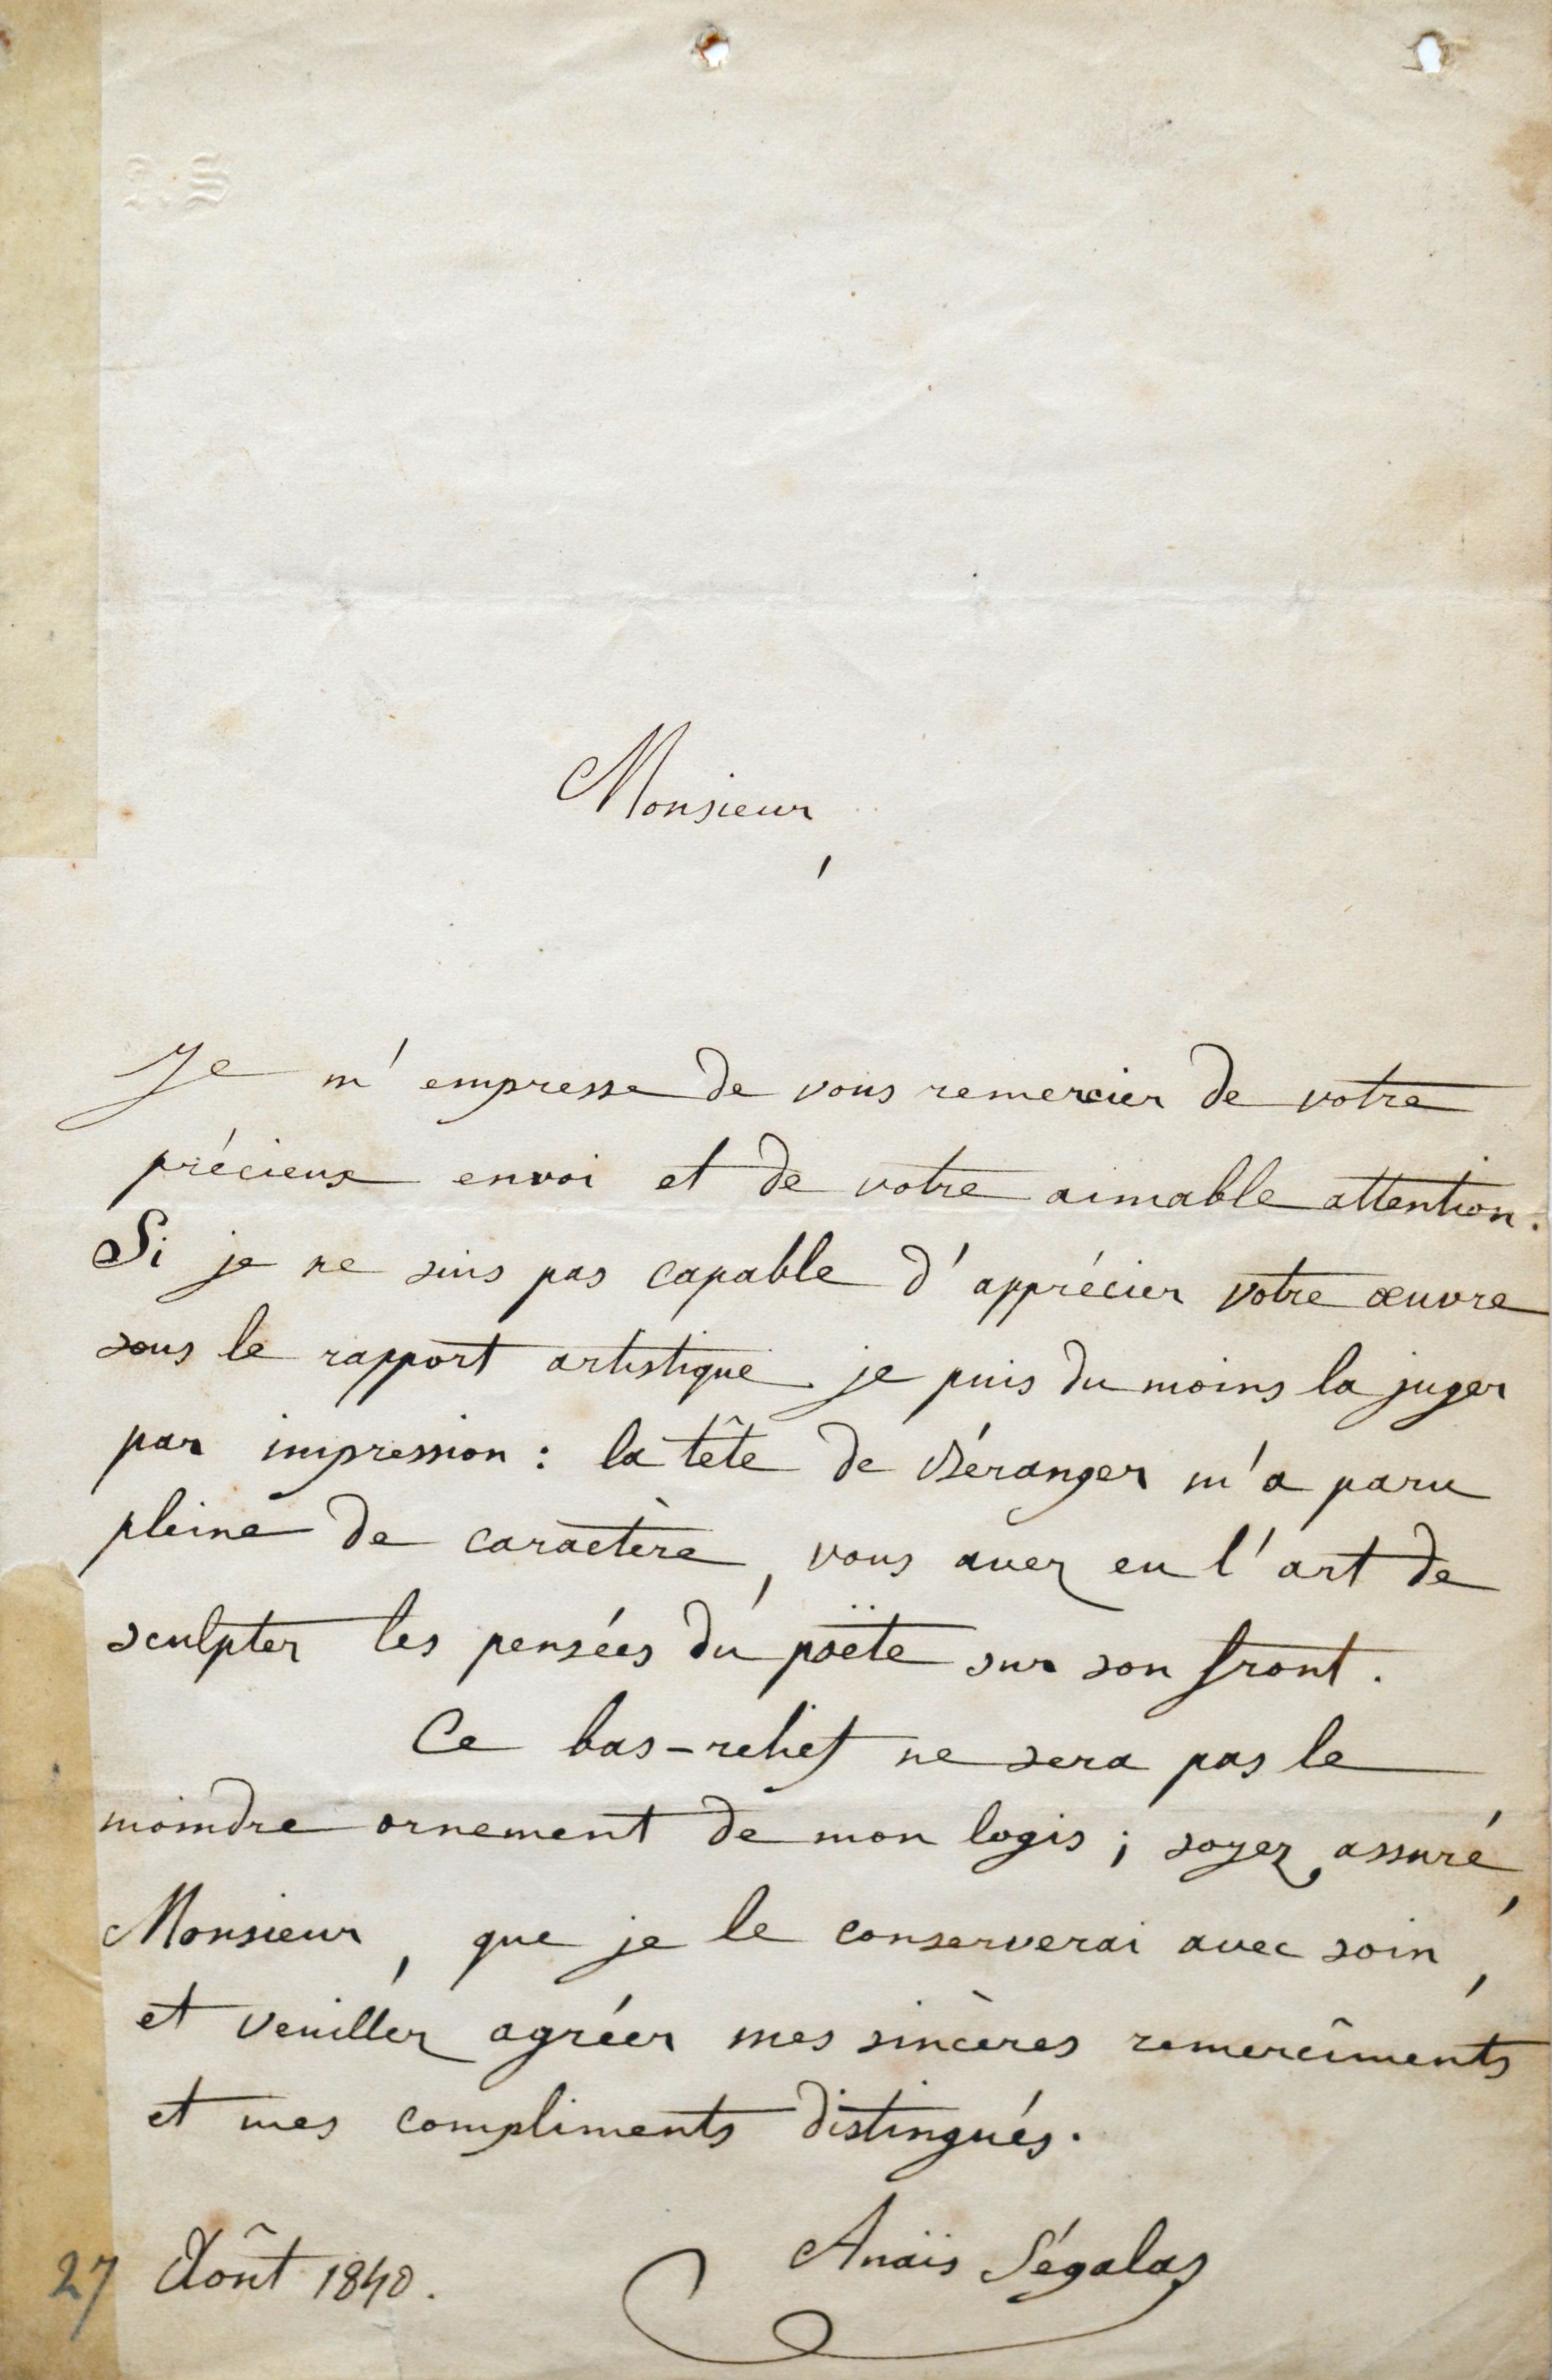 A.S
Monsieur,
Je m'empresse de vous remercier de votre
précieux envoi et de votre aimable attention.
Si je ne suis pas capable d'apprécier votre œuvre
sous le rapport artistique je puis du moins la juger
par impression : la tête de Béranger m'a paru
pleine de caractère, vous avez eu l'art de
sculpter les pensées du poëte sur son front.
Ce bas-relief ne sera pas le
moindre ornement de mon logis ; soyez assuré,
Monsieur, que je le conserverai avec soin,
et veuillez agréer mes sincères remercîments
et mes compliments distingués.
Anaïs Ségalas
27 Août 1840.